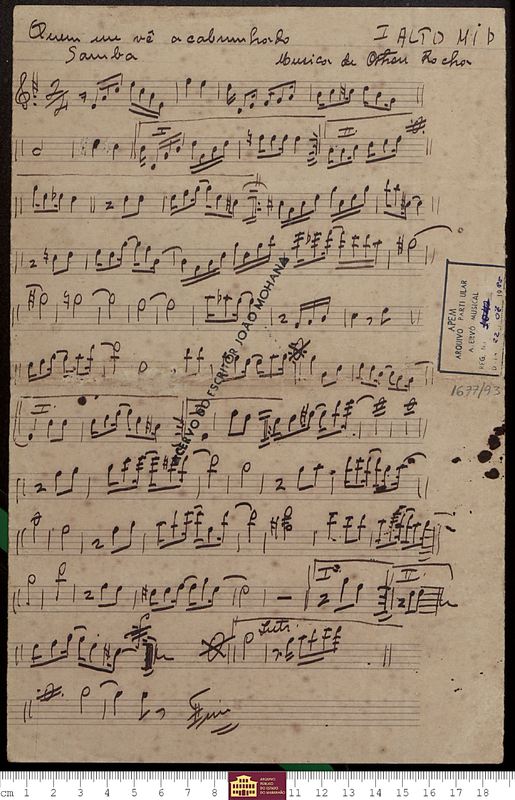 Quem me vê acabrunhado
I ALTO Mi b
Samba
Musica de Othon Rocha
I
II
ACERVO DO ESCRITOR JOÃO MOHANA
APEM
ARQUIVO PARTICULAR
ACERVO MUSICAL
REG. N.
1677/93
II
Iº
II
Tuti
Fim
cm 1 2 3 4 5 6 7 8
ARQUIVO
PÚBLICO
DO ESTADO
DO MARANHÃO
11 12 13 14 15 16 17 18